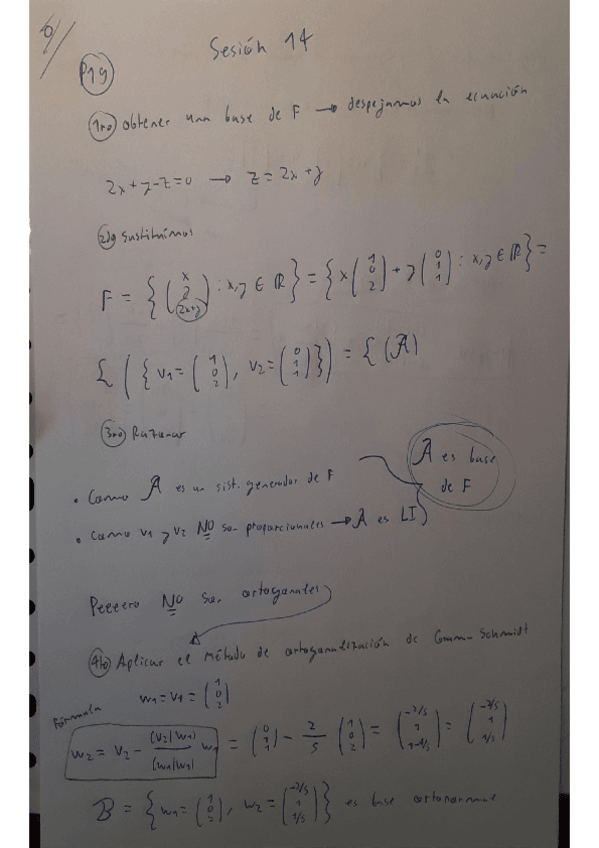 Sesión 14
P19
1ro obtener una base de F → despejamos la ecuación
2x + y - z = 0 → z = 2x + y
2do Sustituimos
F = { (x y 2x+y) : x, y ∈ ℝ } = { x (1 0 2) + y (0 1 1) : x, y ∈ ℝ } =
L ( { v1 = (1 0 2), v2 = (0 1 1) } ) = L (A)
3ro Razonar
• Como A es un sist. generador de F
A es base de F
• Como v1 y v2 NO son proporcionales → A es LI
Peeeero NO son ortogonales
4to Aplicar el método de ortogonalización de Gramm-Schmidt
w1 = v1 = (1 0 2)
Fórmula
w2 = v2 - (v2|w1)/(w1|w1) w1 = (0 1 1) - 2/5 (1 0 2) = (-2/5 1 1-4/5) = (-2/5 1 1/5)
B = { w1 = (1 0 2), w2 = (-2/5 1 1/5) } es base ortonormal